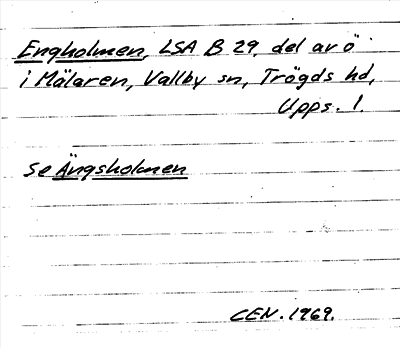 Engholmen, LSA B 29, del av ö
i Mälaren, Vallby sn, Trögds hd,
Upps. l.
se Ängsholmen
CEN. 1969.